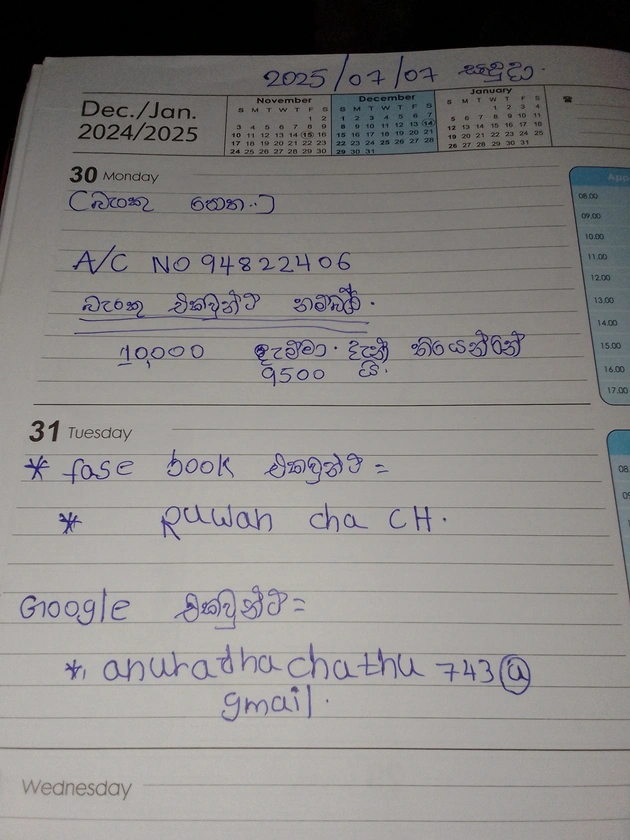 2025/07/07 සඳුදා.
Dec./Jan.
2024/2025
November
S M T W T F S
1 2
3 4 5 6 7 8 9
10 11 12 13 14 15 16
17 18 19 20 21 22 23
24 25 26 27 28 29 30
December
S M T W T F S
1 2 3 4 5 6 7
8 9 10 11 12 13 14
15 16 17 18 19 20 21
22 23 24 25 26 27 28
29 30 31
January
S M T W T F S
1 2 3 4
5 6 7 8 9 10 11
12 13 14 15 16 17 18
19 20 21 22 23 24 25
26 27 28 29 30 31
30 Monday
(බැංකු පොත..)
A/C NO 94822406
බැංකු එකවුන්ට් නම්බර්.
10,000 දැම්මා. දැන් තියෙන්නේ
9500 යි.
31 Tuesday
* fase book එකවුන්ට් =
* Ruwan cha CH.
Google එකවුන්ට් =
* anuradhachathu743@
gmail.
Wednesday
App
08.00
09.00
10.00
11.00
12.00
13.00
14.00
15.00
16.00
17.00